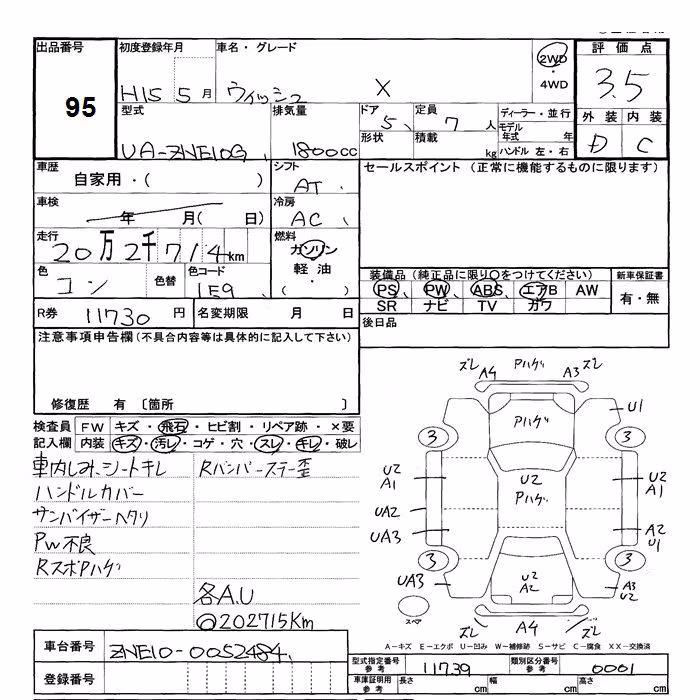 出品番号 初度登録年月 車名・グレード 評価点
95 H15 5月 ウィッシュ X 2WD・4WD 3.5
型式 排気量 ドア 5 定員 7人 ディーラー・並行 外装 内装
UA-ZNE10G 1800cc 形状 積載 kg モデル年式 年 ハンドル 左・右 D C
車歴 自家用・( ) シフト AT セールスポイント (正常に機能するものに限ります)
車検 年 月( 日) 冷房 AC
走行 20万2千714km 燃料 ガソリン 軽油・( )
色 コン 色替 色コード 1E9
装備品(純正品に限り○をつけてください) 新車保証書
PS PW ABS エアB AW 有・無
SR ナビ TV ガワ
R券 11730円 名変期限 月 日 後日品
注意事項申告欄(不具合内容等は具体的に記入して下さい)
修復歴 有 〔箇所 〕
検査員 FW キズ・飛石・ヒビ割・リペア跡・×要
記入欄 内装 キズ・汚レ・コゲ・穴・スレ・キレ・破レ
車内しみ、シートキレ Rバンパーステー歪
ハンドルカバー
サンバイザーヘタリ
PW不良
RスポPハゲ
各A.U
◎202715Km
ズレ A4 Pハゲ A3 ズレ
Pハゲ U1
3 3
U2 A1 U2 Pハゲ U2 A1
UA2
UA3 A2 U1
3 3
UA3 U2 A2 A3 U2
スペア ズレ A4 ズレ
A-キズ E-エクボ U-凹み W-補修跡 S-サビ C-腐食 XX-交換済
車台番号 ZNE10-0052484
型式指定番号 参考 11739 類別区分番号 参考 0001
登録番号 車庫証明用 参考 長さ cm 幅 cm 高さ cm